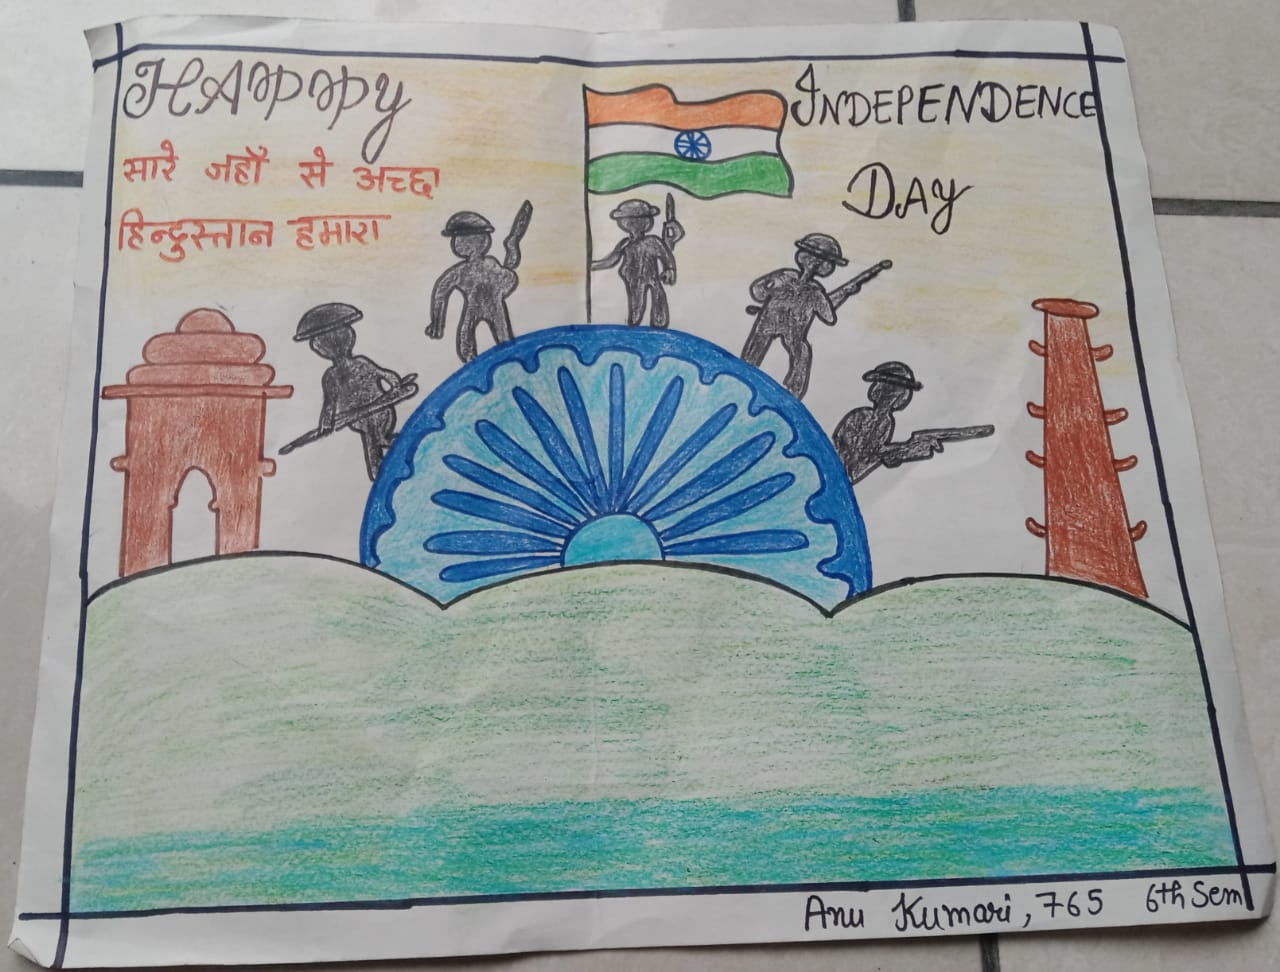 HAPPY
INDEPENDENCE
DAY
सारे जहाँ से अच्छा
हिन्दुस्तान हमारा
Anu Kumari, 765 6th Sem